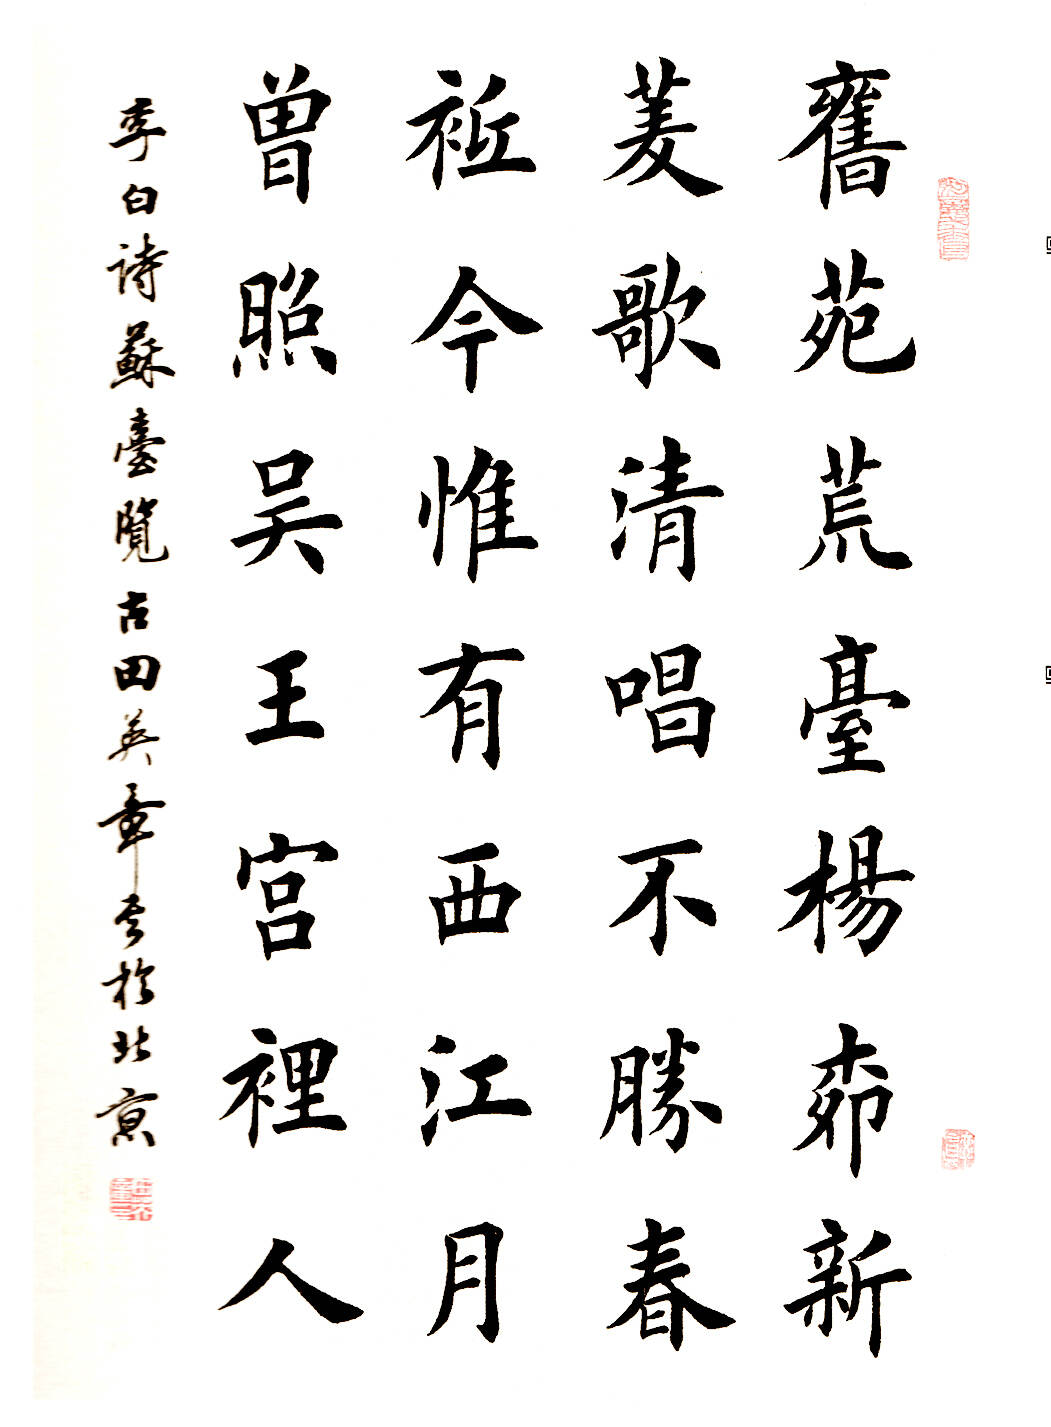 舊苑荒臺楊柳新
菱歌清唱不勝春
祗今惟有西江月
曾照吴王宫裡人
李白詩蘇臺覽古田英章書於北京